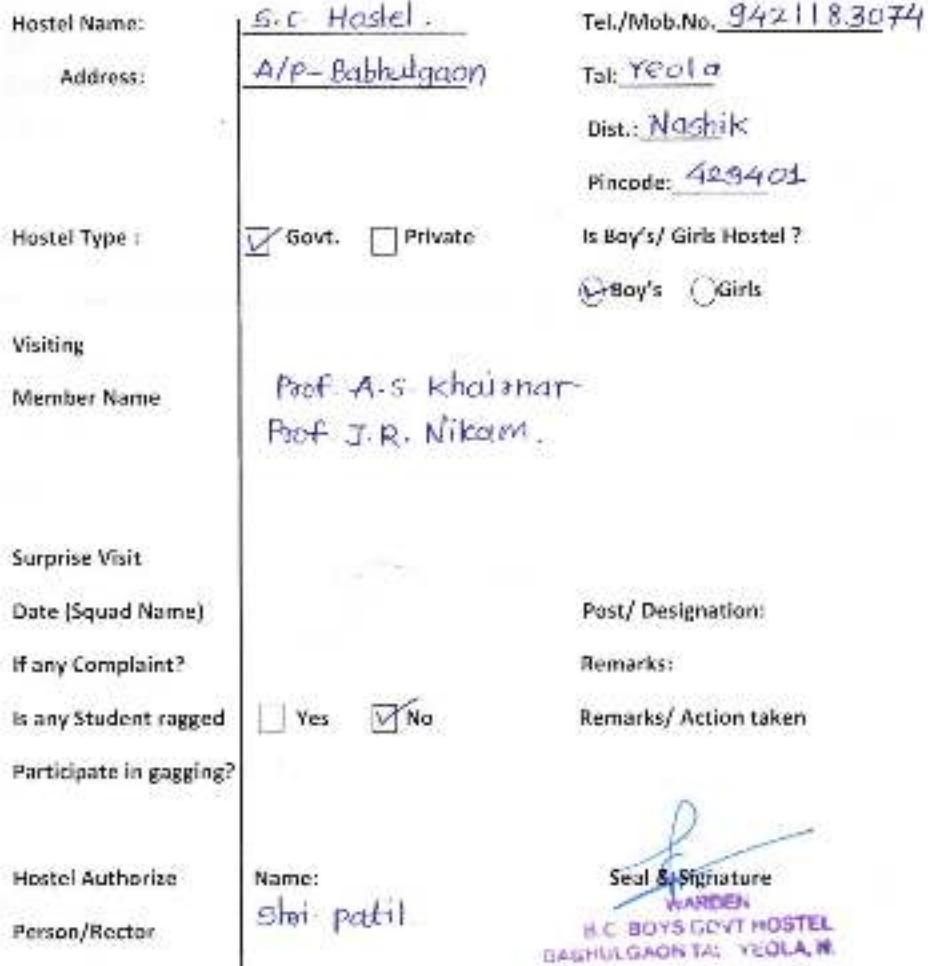 Hostel Name: S.C. Hostel. Tel./Mob.No. 9421183074
Address: A/P- Babhulgaon Tal: Yeola
Dist.: Nashik
Pincode: 429401
Hostel Type : Govt. Private Is Boy's/ Girls Hostel ?
Boy's Girls
Visiting
Member Name Prof. A.S. Khairnar
Prof J.R. Nikam.
Surprise Visit
Date (Squad Name) Post/ Designation:
If any Complaint? Remarks:
Is any Student ragged Yes No Remarks/ Action taken
Participate in gagging?
Hostel Authorize Name: Seal & Signature
Person/Rector Shri patil
WARDEN
B.C. BOYS GOVT HOSTEL
BABHULGAON TAL YEOLA, N.